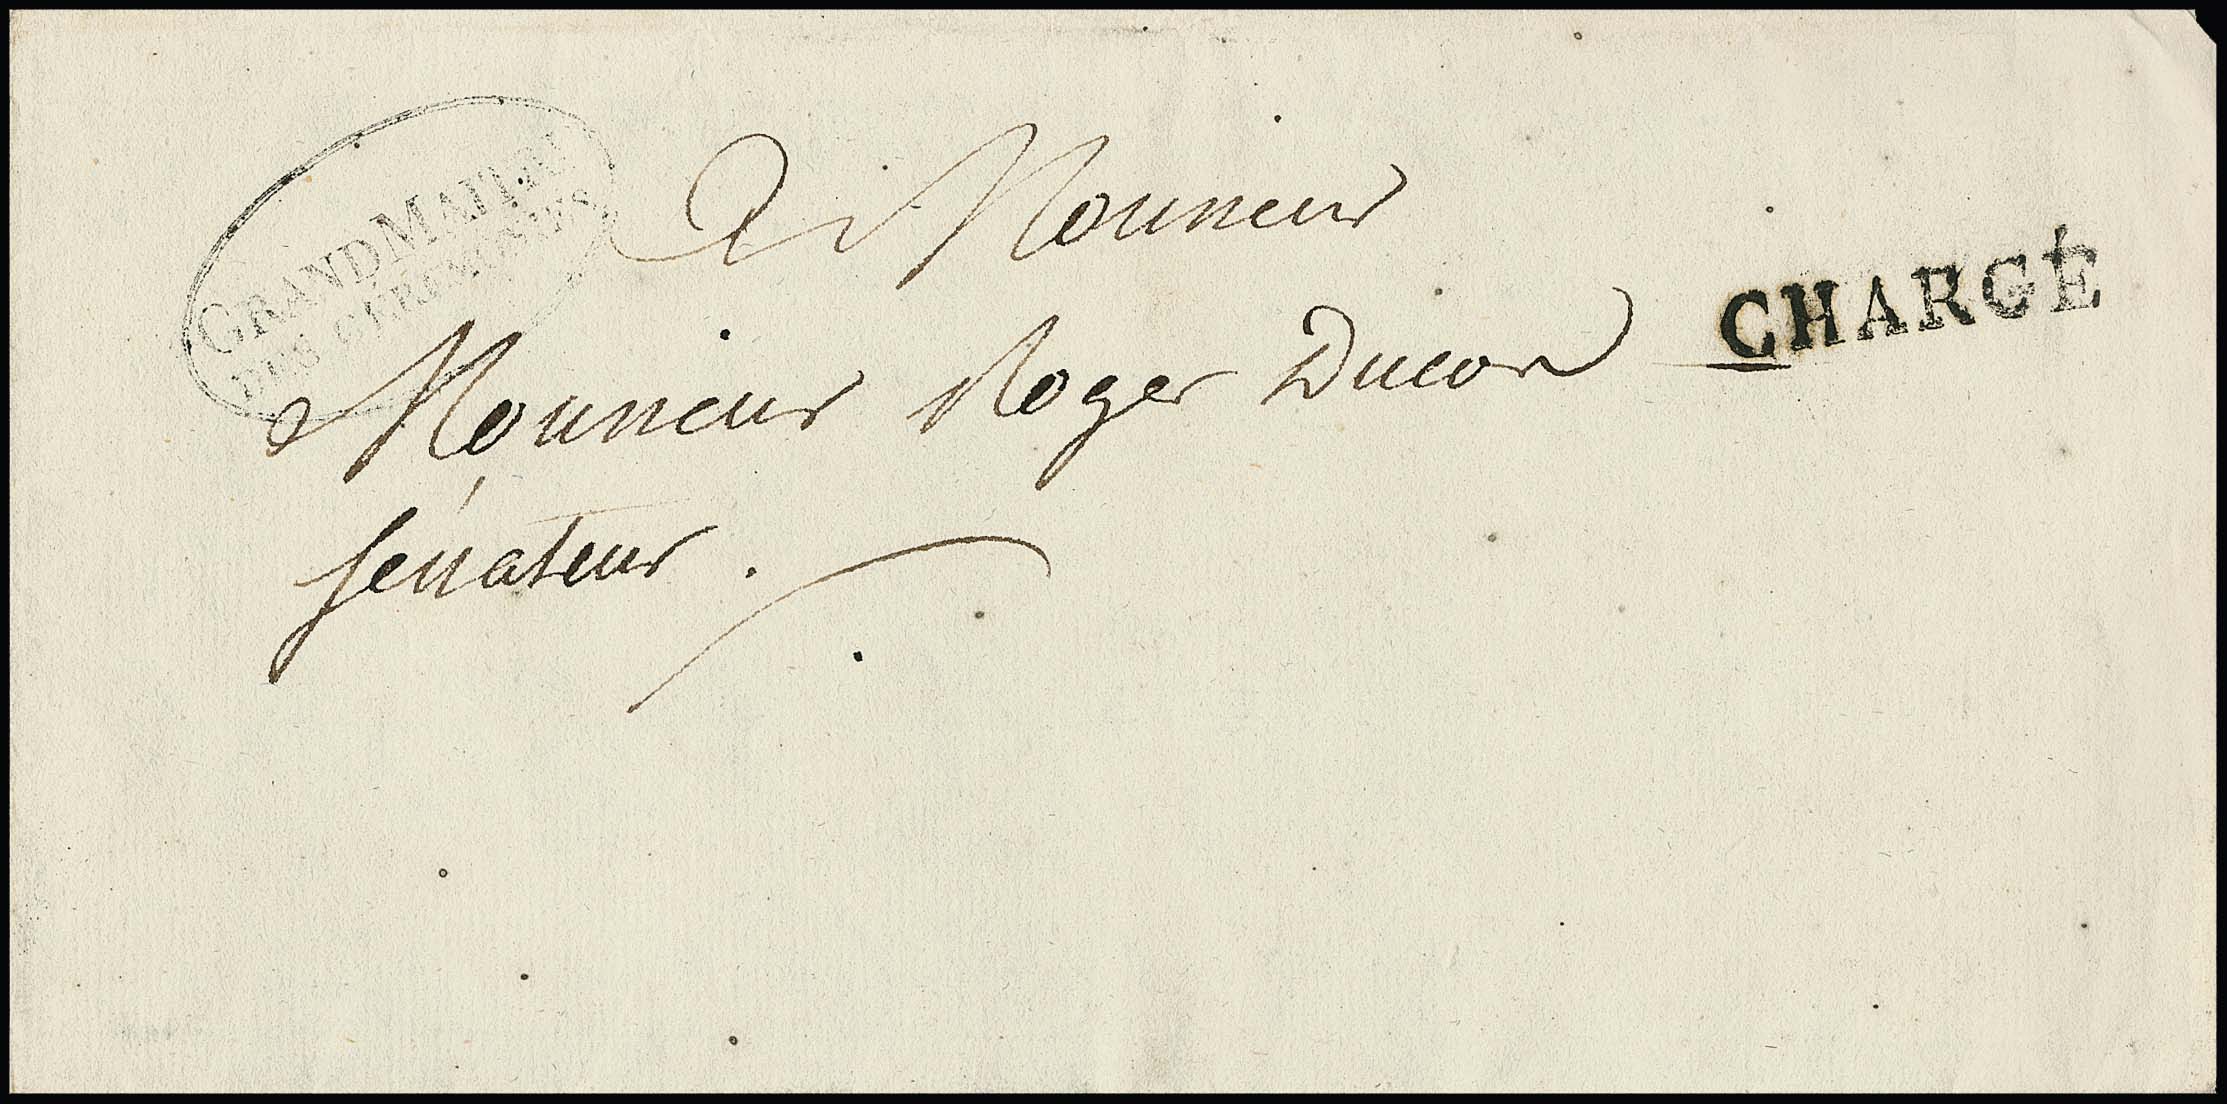 GRAND MAITRE
DES CÉRÉMONIES
A Monsieur
Monsieur Roger Ducos
CHARGÉ
sénateur.